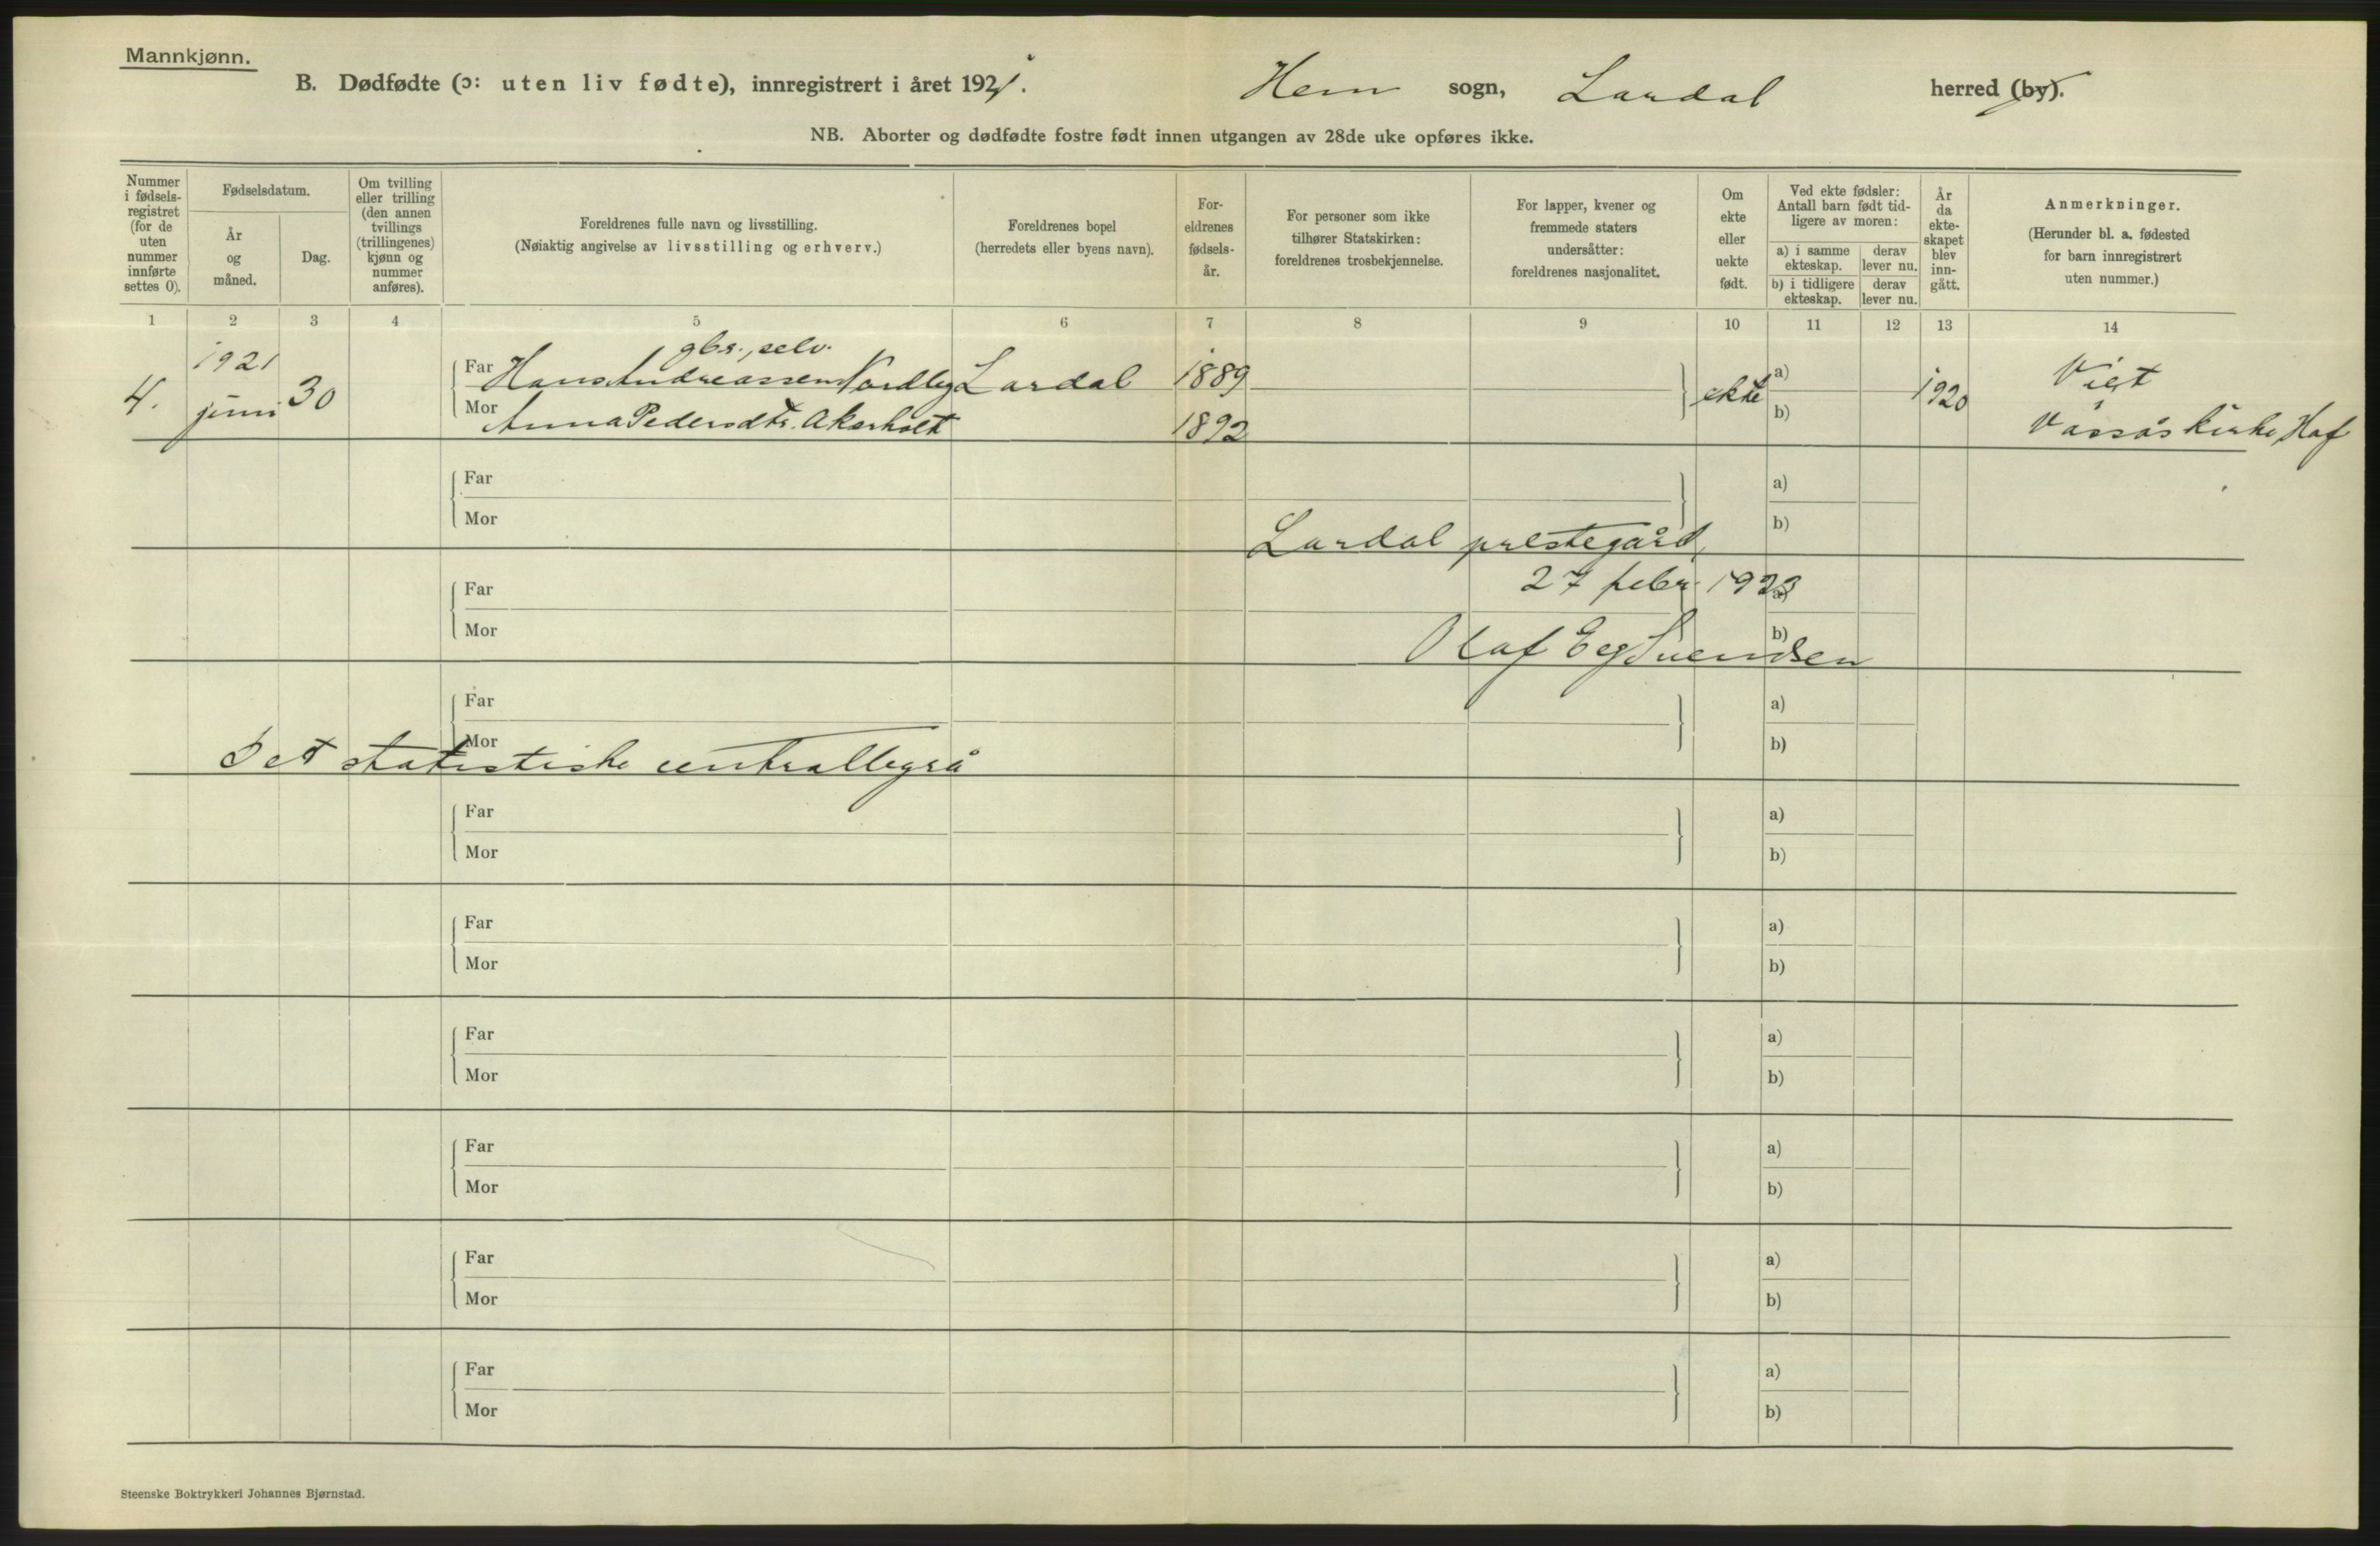 Mannkjønn.
B. Dødfødte (ɔ: uten liv fødte), innregistrert i året 1921. Hem sogn, Lardal herred (by).
NB. Aborter og dødfødte fostre født innen utgangen av 28de uke opføres ikke.
Nummer i fødsels-registret (for de uten nummer innførte settes 0).
Fødselsdatum.
År og måned.
Dag.
Om tvilling eller trilling (den annen tvillings (trillingenes) kjønn og nummer anføres).
Foreldrenes fulle navn og livsstilling.
(Nøiaktig angivelse av livsstilling og erhverv.)
Foreldrenes bopel
(herredets eller byens navn).
For-eldrenes fødsels-år.
For personer som ikke tilhører Statskirken: foreldrenes trosbekjennelse.
For lapper, kvener og fremmede staters undersåtter: foreldrenes nasjonalitet.
Om ekte eller uekte født.
Ved ekte fødsler: Antall barn født tid-ligere av moren:
a) i samme ekteskap. derav lever nu.
b) i tidligere ekteskap. derav lever nu.
År da ekte-skapet blev inn-gått.
Anmerkninger.
(Herunder bl. a. fødested for barn innregistrert uten nummer.)
1 2 3 4 5 6 7 8 9 10 11 12 13 14
gbr., selv.
4. 1921 juni 30 Far Hans Andreassen Nordby Lardal 1889 ekte a) 1920 Vigt
Mor Anna Pedersdtr. Akerholt 1892 b) Vassås kirke, Hof
Far a)
Mor b)
Lardal prestegård,
27 febr. 1923
Far
Mor b)
Olaf Eeg Svendsen
Far a)
Mor b)
Det statistiske centralbyrå
Far a)
Mor b)
Far a)
Mor b)
Far a)
Mor b)
Far a)
Mor b)
Far a)
Mor b)
Far a)
Mor b)
Steenske Boktrykkeri Johannes Bjørnstad.